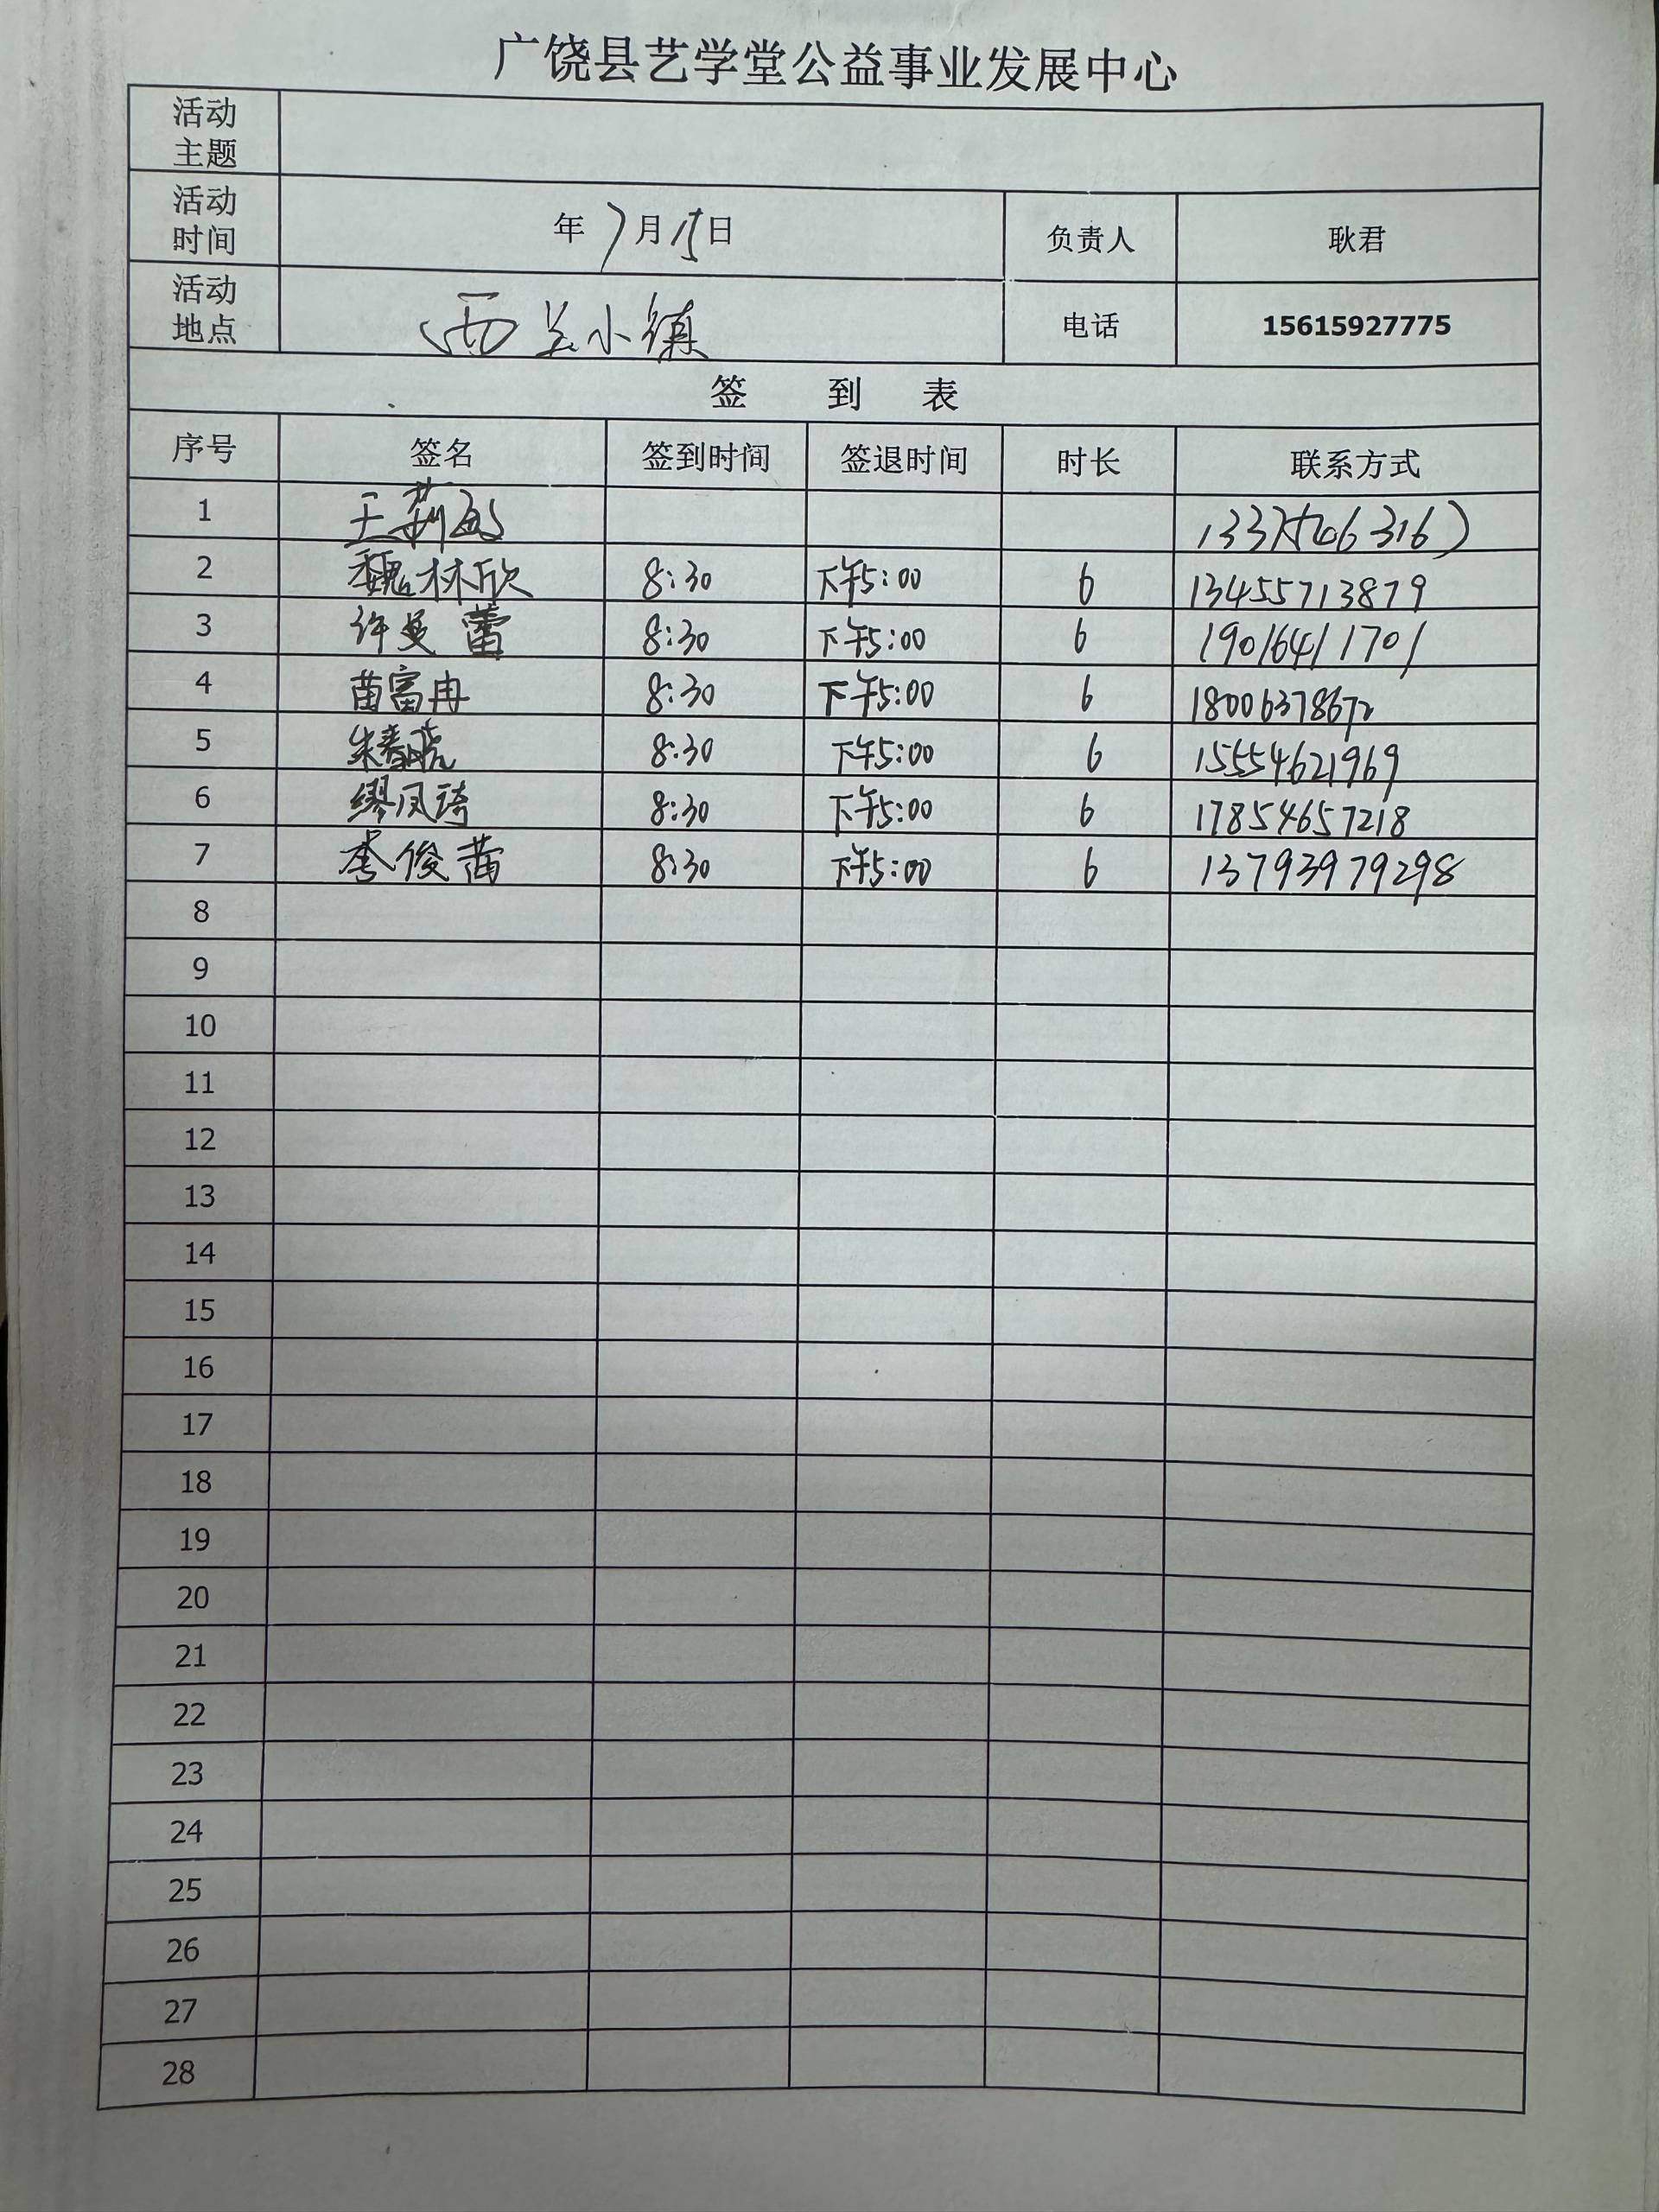 广饶县艺学堂公益事业发展中心
活动主题
活动时间 年 7月15日 负责人 耿君
活动地点 西 小镇 电话 15615927775
签 到 表
序号 签名 签到时间 签退时间 时长 联系方式
1 王莉
2 魏林欣 8:30 下午5:00 6 13455713879
3 许曼蕾 8:30 下午5:00 6 19016411701
4 苗富冉 8:30 下午5:00 6 18006378672
5 朱春晓 8:30 下午5:00 6 15554621969
6 缪凤琦 8:30 下午5:00 6 17854657218
7 李俊茜 8:30 下午5:00 6 13793979298
8
9
10
11
12
13
14
15
16
17
18
19
20
21
22
23
24
25
26
27
28